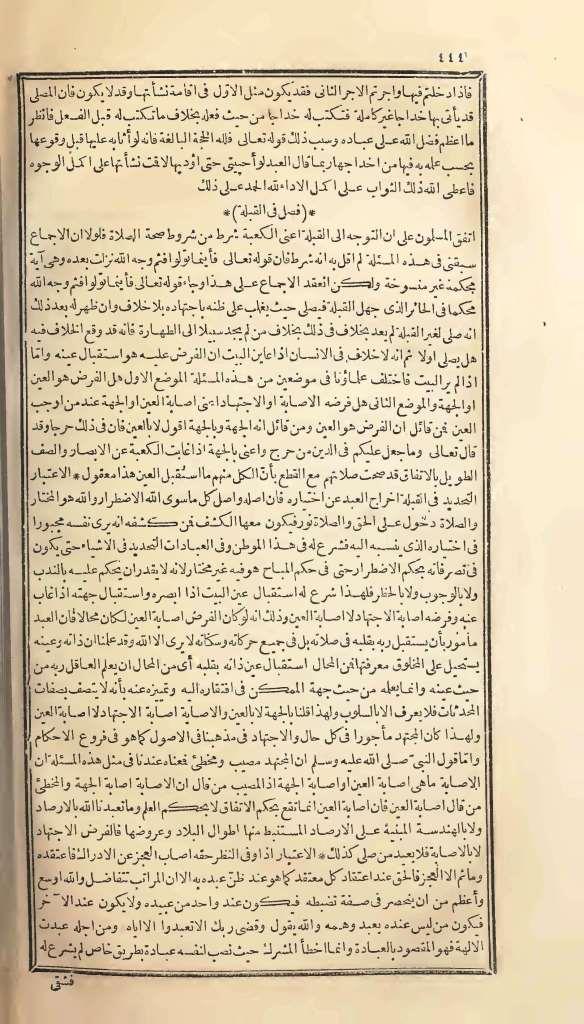 ٤٤٤
فاذا دخلتم فيها واجرتم الاجر الثاني فقد يكون مثل الاول في اقامة نشأتها وقد لا يكون فان المصلى
قد يأتي بها خداجا غير كاملة فتكتب له خداجا من حيث فعله بخلاف ما تكتب له قبل الفعل فانظر
ما أعظم فضل الله على عباده وسبب ذلك قوله تعالى فلله الحجة البالغة فانه لو أثابه عليها قبل وقوعها
بحسب علمه به فيها من اخداجها ربما قال العبد لو أحييتني حتى أوديها لاقت نشأتها على اكمل الوجوه
فاعطى الله ذلك الثواب على اكمل الاداء لله الحمد على ذلك
*(فصل في القبلة)*
اتفق المسلمون على ان التوجه الى القبلة اعنى الكعبة شرط من شروط صحة الصلاة فلولا ان الاجماع
سبقنى في هذه المسئلة لم اقل به انه شرط فان قوله تعالى فأينما تولوا فثم وجه الله نزلت بعده وهى آية
محكمة غير منسوخة ولكن انعقد الاجماع على هذا وجاء قوله تعالى فأينما تولوا فثم وجه الله
محكما في الحائر الذى جهل القبلة فيصلى حيث يغلب على ظنه باجتهاده بلا خلاف وان ظهر له بعد ذلك
انه صلى لغير القبلة لم يعد بخلاف في ذلك بخلاف من لم يجد سبيلا الى الطهارة فانه قد وقع الخلاف فيه
هل يصلى اولا ثم انه لا خلاف في الانسان اذا عاين البيت ان الفرض عليه هو استقبال عينه وامّا
اذا لم ير البيت فاختلف علماؤنا في موضعين من هذه المسئلة الموضع الاول هل الفرض هو العين
او الجهة والموضع الثانى هل فرضه الاصابة او الاجتهاد اعنى اصابة العين او الجهة عند من اوجب
العين فمن قائل ان الفرض هو العين ومن قائل انه الجهة وبالجهة اقول لا بالعين فان في ذلك حرجا وقد
قال تعالى وما جعل عليكم في الدين من حرج واعنى بالجهة اذا غابت الكعبة عن الابصار والصف
الطويل بالاتفاق قد صحت صلاتهم مع القطع بأنّ الكل منهم ما استقبل العين هذا معقول * الاعتبار
التحديد في القبلة اخراج العبد عن اختياره فان اصله واصل كل ما سوى الله الاضطرار والله هو المختار
والصلاة دخول على الحق والصلاة نور فيكون معها الكشف فمن كشفه انه يرى نفسه مجبورا
في اختياره الذى ينسبه اليه فشرع له في هذا الموطن وفي العبادات التحديد في الاشياء حتى يكون
في تصرفاته بحكم الاضطرار حتى في حكم المباح هو فيه غير مختار لانه لا يقدر ان يحكم عليه بالندب
ولا بالوجوب ولا بالحظر فلهذا شرع له استقبال عين البيت اذا ابصره واستقبال جهته اذا غاب
عنه وفرضه اصابة الاجتهاد لا اصابة العين وذلك انه لو كان الفرض اصابة العين لكان محالا فان العبد
مأمور بأن يستقبل ربه بقلبه في صلاته بل في جميع حركاته وسكناته لا يرى الا الله وقد علمنا ان ذاته وعينه
يستحيل على المخلوق معرفتها فمن المحال استقبال عين ذاته بقلبه أى من المحال ان يعلم العاقل ربه من
حيث عينه وانما يعلمه من حيث جهة الممكن في افتقاره اليه وتميزه عنه بأنه لا يتصف بصفات
المحدثات فلا يعرف الا بالسلوب ولهذا قلنا بالجهة لا بالعين والاصابة اصابة الاجتهاد لا اصابة العين
ولهذا كان المجتهد مأجورا في كل حال والاجتهاد في مذهبنا في الاصول كما هو في فروع الاحكام
وامّا قول النبي صلى الله عليه وسلم ان المجتهد مصيب ومخطئ فمعناه عندنا في مثل هذه المسئلة ان
الاصابة ما هى اصابة العين او اصابة الجهة اذ المصيب من قال ان الاصابة اصابة الجهة والمخطئ
من قال اصابة العين فان اصابة العين انما تقع بحكم الاتفاق لا بحكم العلم وما تعبدنا الله بالارصاد
ولا بالهندسة المبنية على الارصاد المستنبط منها اطوال البلاد وعروضها فالفرض الاجتهاد
لا بالاصابة فلا يعيد من صلى كذلك * الاعتبار اذا وفي النظر حقه اصاب العجز عن الادراك فاعتقده
وما ثم الا العجز فالحق عند اعتقاد كل معتقد كما هو عند ظنّ عبده به الا ان المراتب تتفاضل والله اوسع
وأعظم من ان ينحصر في صفة تضبطه فيكون عند واحد من عبيده ولا يكون عند الآخر
فيكون من ليس عنده يعبد وهمه والله يقول وقضى ربك الا تعبدوا الا اياه ومن اجله عبدت
الالهة فهو المقصود بالعبادة وانما اخطأ المشرك حيث نصب لنفسه عبادة بطريق خاص لم يشرع له
فشقى